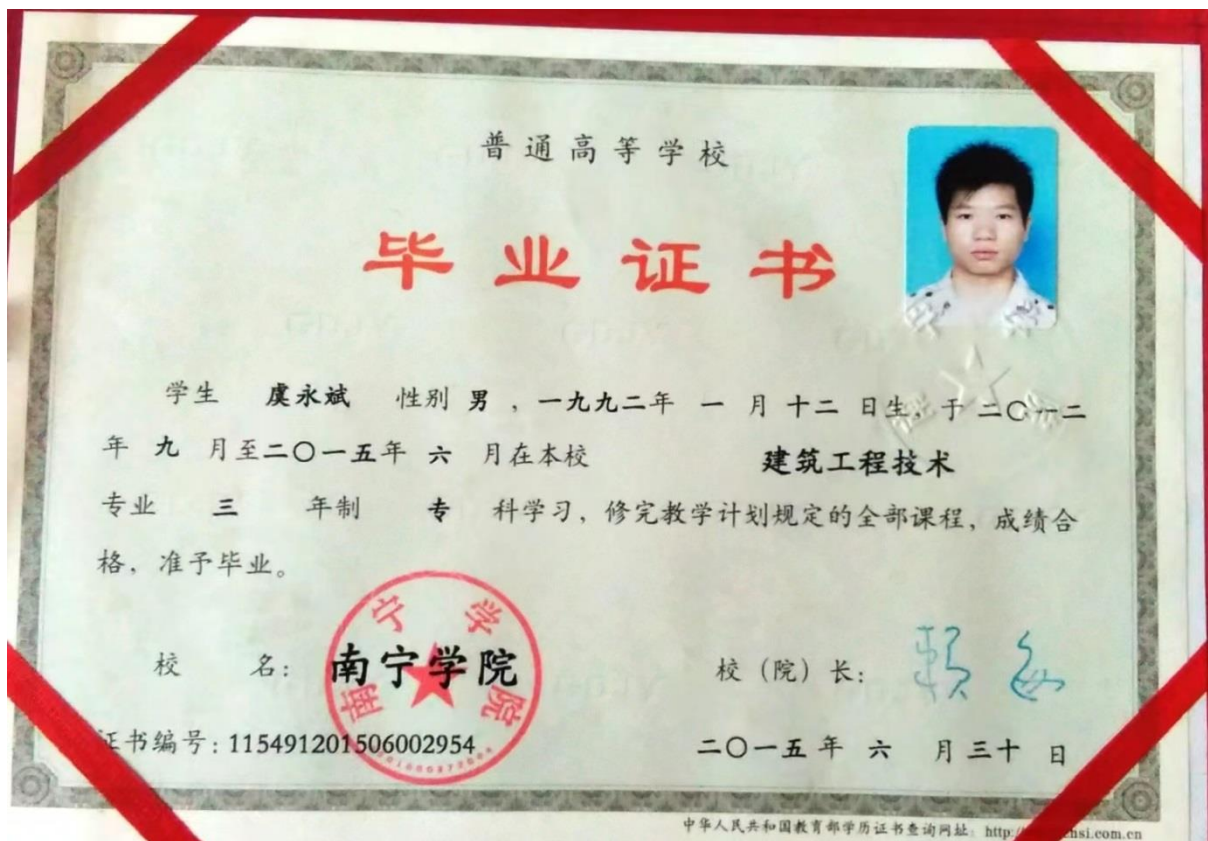 普通高等学校
毕业证书
学生 虞永斌 性别 男 ，一九九二年 一 月 十二 日生，于 二〇一二
年 九 月至二〇一五年 六 月在本校 建筑工程技术
专业 三 年制 专 科学习，修完教学计划规定的全部课程，成绩合
格，准予毕业。
校 名： 南宁学院
南宁学院
校（院）长：
证书编号：115491201506002954
二〇一五 年 六 月 三十 日
中华人民共和国教育部学历证书查询网址：http:// chsi.com.cn